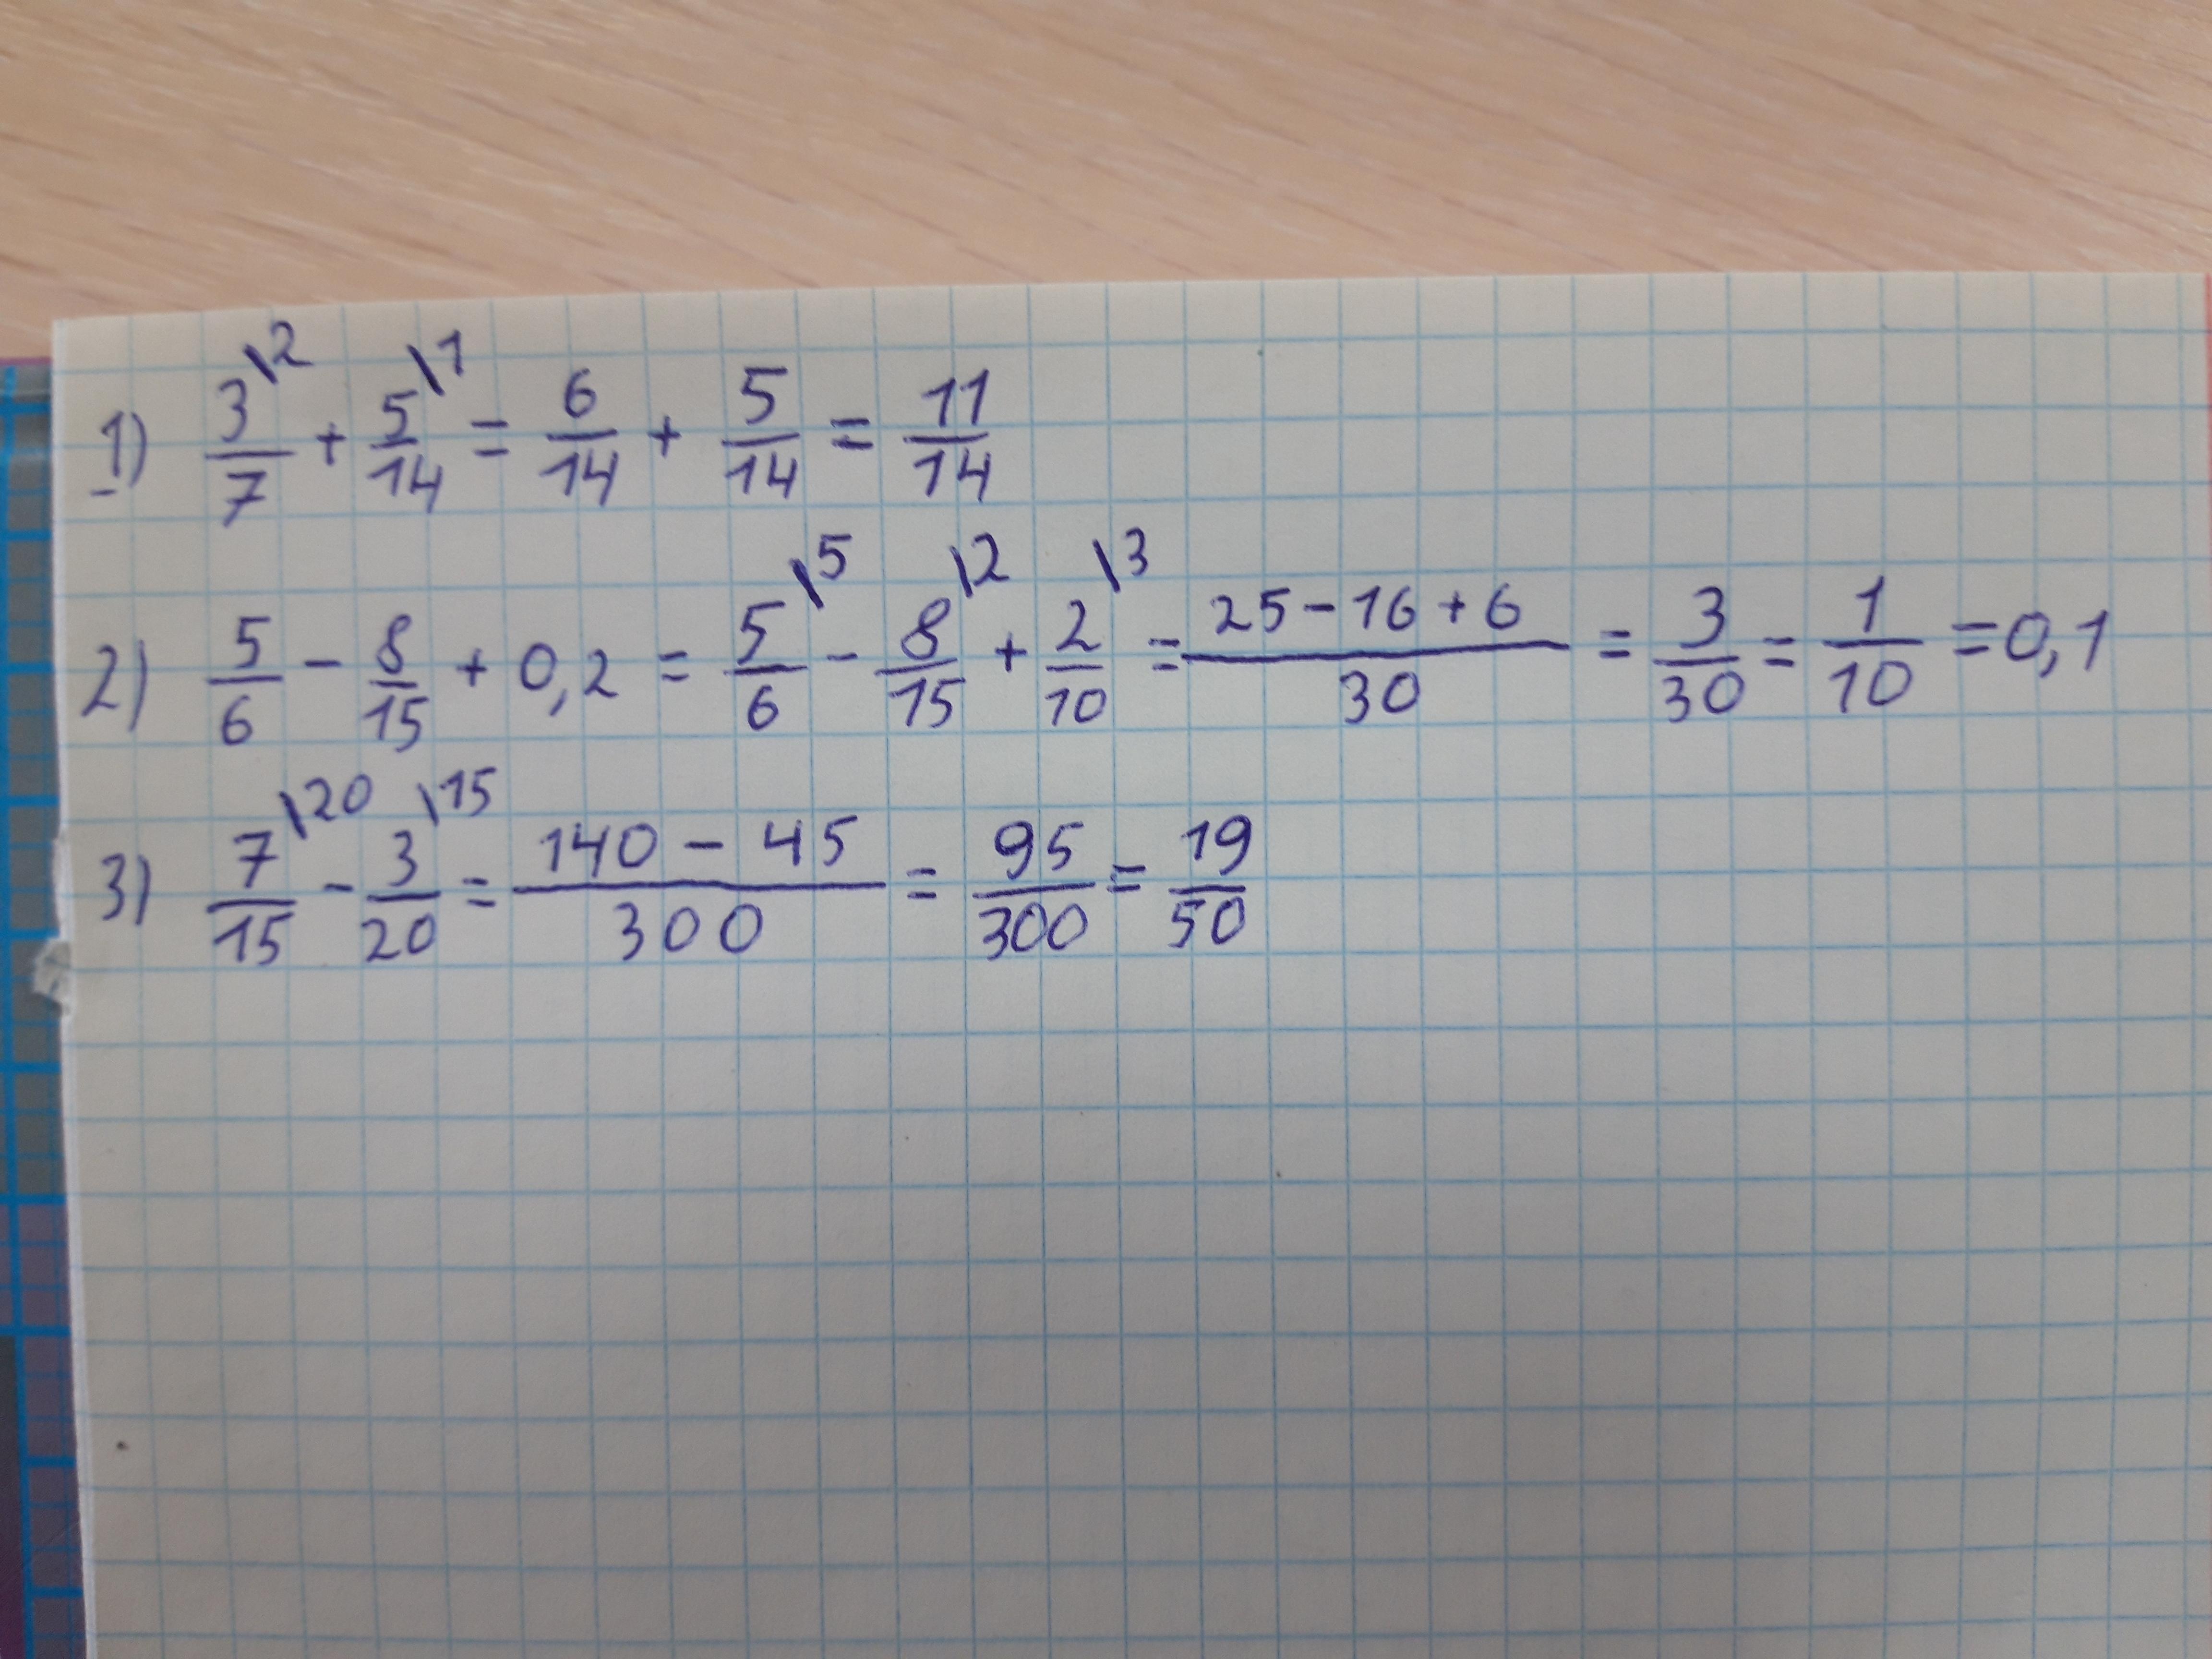 1) 3/7 \2 + 5/14 \1 = 6/14 + 5/14 = 11/14
2) 5/6 - 8/15 + 0,2 = 5/6 \5 - 8/15 \2 + 2/10 \3 = 25-16+6/30 = 3/30 = 1/10 = 0,1
3) 7/15 \20 - 3/20 \15 = 140 - 45/300 = 95/300 = 19/50